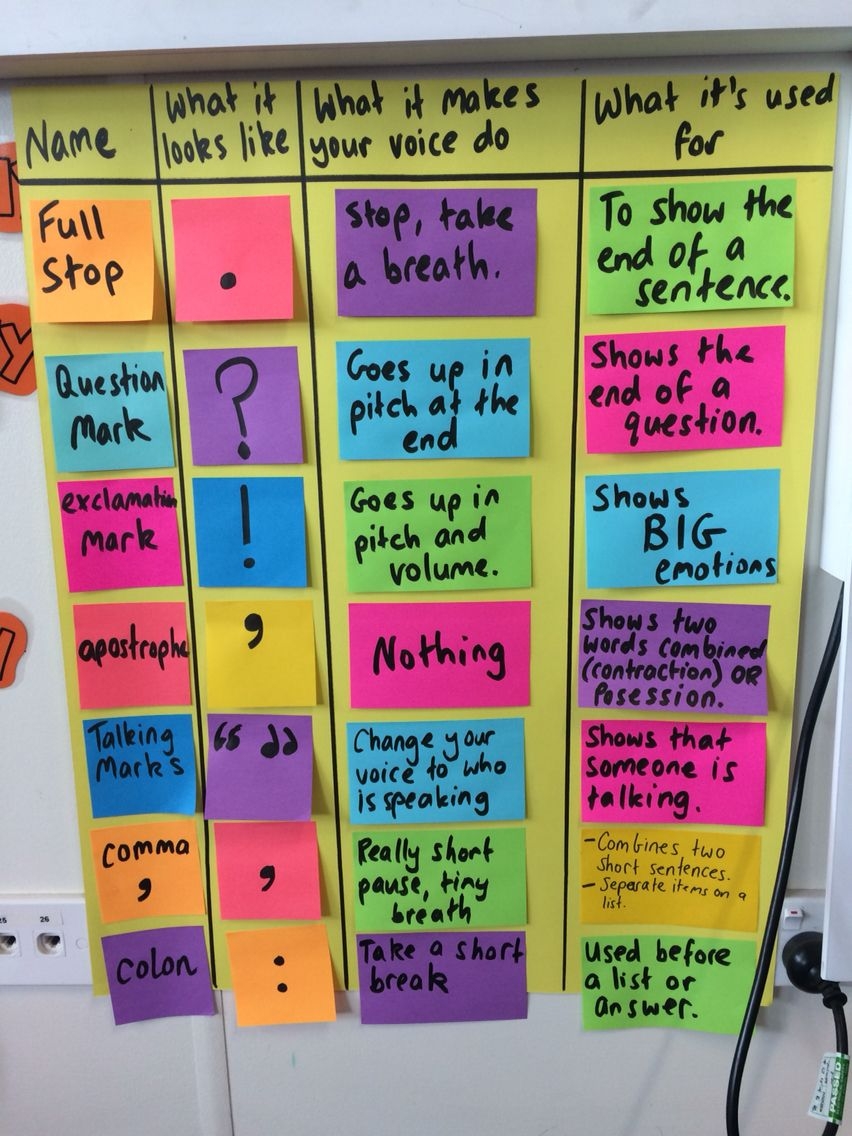 Name
What it
looks like
What it makes
your voice do
What it's used
for
Full
Stop
.
Stop, take
a breath.
To show the
end of a
sentence.
Question
Mark
?
Goes up in
pitch at the
end
Shows the
end of a
question.
exclamation
Mark
!
Goes up in
pitch and
volume.
Shows
BIG
emotions
apostrophe
’
Nothing
Shows two
words combined
(contraction) OR
Posession.
Talking
Marks
“ ”
Change your
voice to who
is speaking
Shows that
someone is
talking.
comma
,
,
Really short
pause, tiny
breath
-Combines two
short sentences.
- Separate items on a
list.
colon
:
Take a short
break
Used before
a list or
answer.
25
26
PASSED